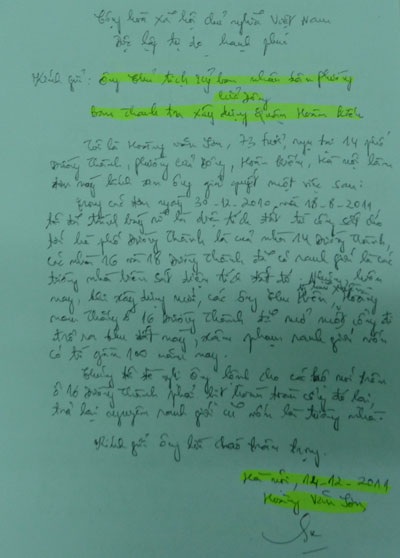 Cộng hòa xã hội chủ nghĩa Việt Nam
Độc lập tự do hạnh phúc
Kính gửi: Ông Chủ tịch Uỷ ban nhân dân phường
Cửa Đông
Ban thanh tra xây dựng Quận Hoàn Kiếm
Tôi là Hoàng Văn Sơn, 73 tuổi, ngụ tại 14 phố
Đường Thành, phường Cửa Đông, Hoàn Kiếm, Hà Nội làm
đơn này kính xin ông giải quyết một việc sau:
Trong các đơn ngày 30-12-2010 và 18-8-2011
tôi đã trình bày rõ là diện tích đất từ cống sát
hè phố Đường Thành là của nhà 14 Đường Thành,
các nhà 16 và 18 Đường Thành đã có ranh giới là các
tường nhà nằm sát diện tích đất đó.
nay, khi xây dựng mới, các ông Hoàng
Nam Thắng ở 16 Đường Thành đã mở một cổng để
trổ ra khu đất này, xâm phạm ranh giới vốn
có từ gần 100 năm nay.
Chúng tôi đề nghị ông lệnh cho các hộ nói trên
ở 16 Đường Thành phải bịt hoàn toàn cổng đó lại,
trả lại nguyên ranh giới cũ vốn là tường nhà.
Kính gửi ông lời chào trân trọng.
Hà Nội, 14-12-2011
Hoàng Văn Sơn